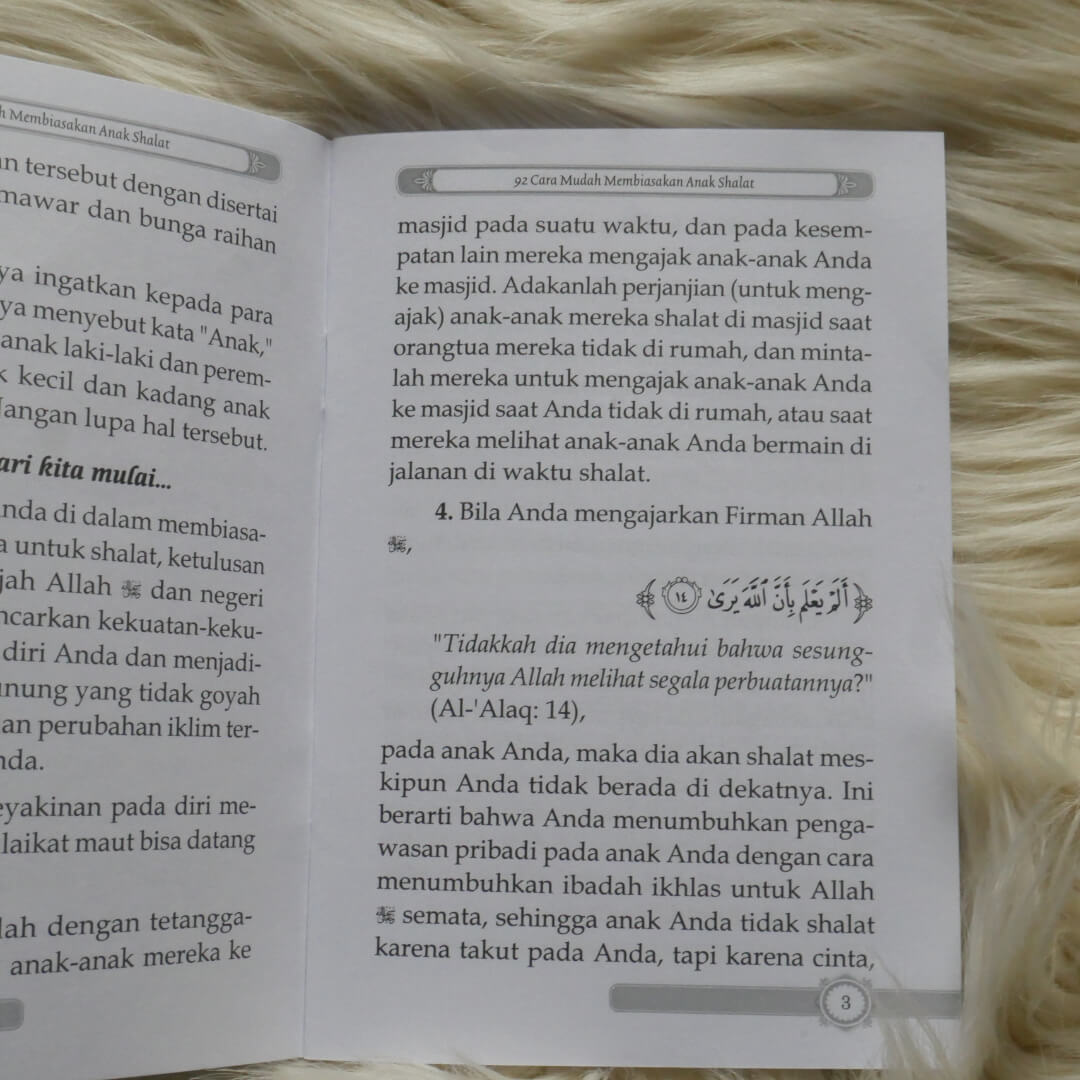 h Membiasakan Anak Shalat
n tersebut dengan disertai
mawar dan bunga raihan
ya ingatkan kepada para
ya menyebut kata "Anak,"
anak laki-laki dan perem-
k kecil dan kadang anak
Jangan lupa hal tersebut.
ari kita mulai...
nda di dalam membiasa-
a untuk shalat, ketulusan
jah Allah ﷻ dan negeri
ncarkan kekuatan-keku-
diri Anda dan menjadi-
unung yang tidak goyah
an perubahan iklim ter-
nda.
eyakinan pada diri me-
laikat maut bisa datang
lah dengan tetangga-
anak-anak mereka ke
92 Cara Mudah Membiasakan Anak Shalat
masjid pada suatu waktu, dan pada kesem-
patan lain mereka mengajak anak-anak Anda
ke masjid. Adakanlah perjanjian (untuk meng-
ajak) anak-anak mereka shalat di masjid saat
orangtua mereka tidak di rumah, dan minta-
lah mereka untuk mengajak anak-anak Anda
ke masjid saat Anda tidak di rumah, atau saat
mereka melihat anak-anak Anda bermain di
jalanan di waktu shalat.
4. Bila Anda mengajarkan Firman Allah
ﷻ,
﴿ أَلَمْ يَعْلَم بِأَنَّ ٱللَّهَ يَرَىٰ ١٤ ﴾
"Tidakkah dia mengetahui bahwa sesung-
guhnya Allah melihat segala perbuatannya?"
(Al-'Alaq: 14),
pada anak Anda, maka dia akan shalat mes-
kipun Anda tidak berada di dekatnya. Ini
berarti bahwa Anda menumbuhkan penga-
wasan pribadi pada anak Anda dengan cara
menumbuhkan ibadah ikhlas untuk Allah
ﷻ semata, sehingga anak Anda tidak shalat
karena takut pada Anda, tapi karena cinta,
3